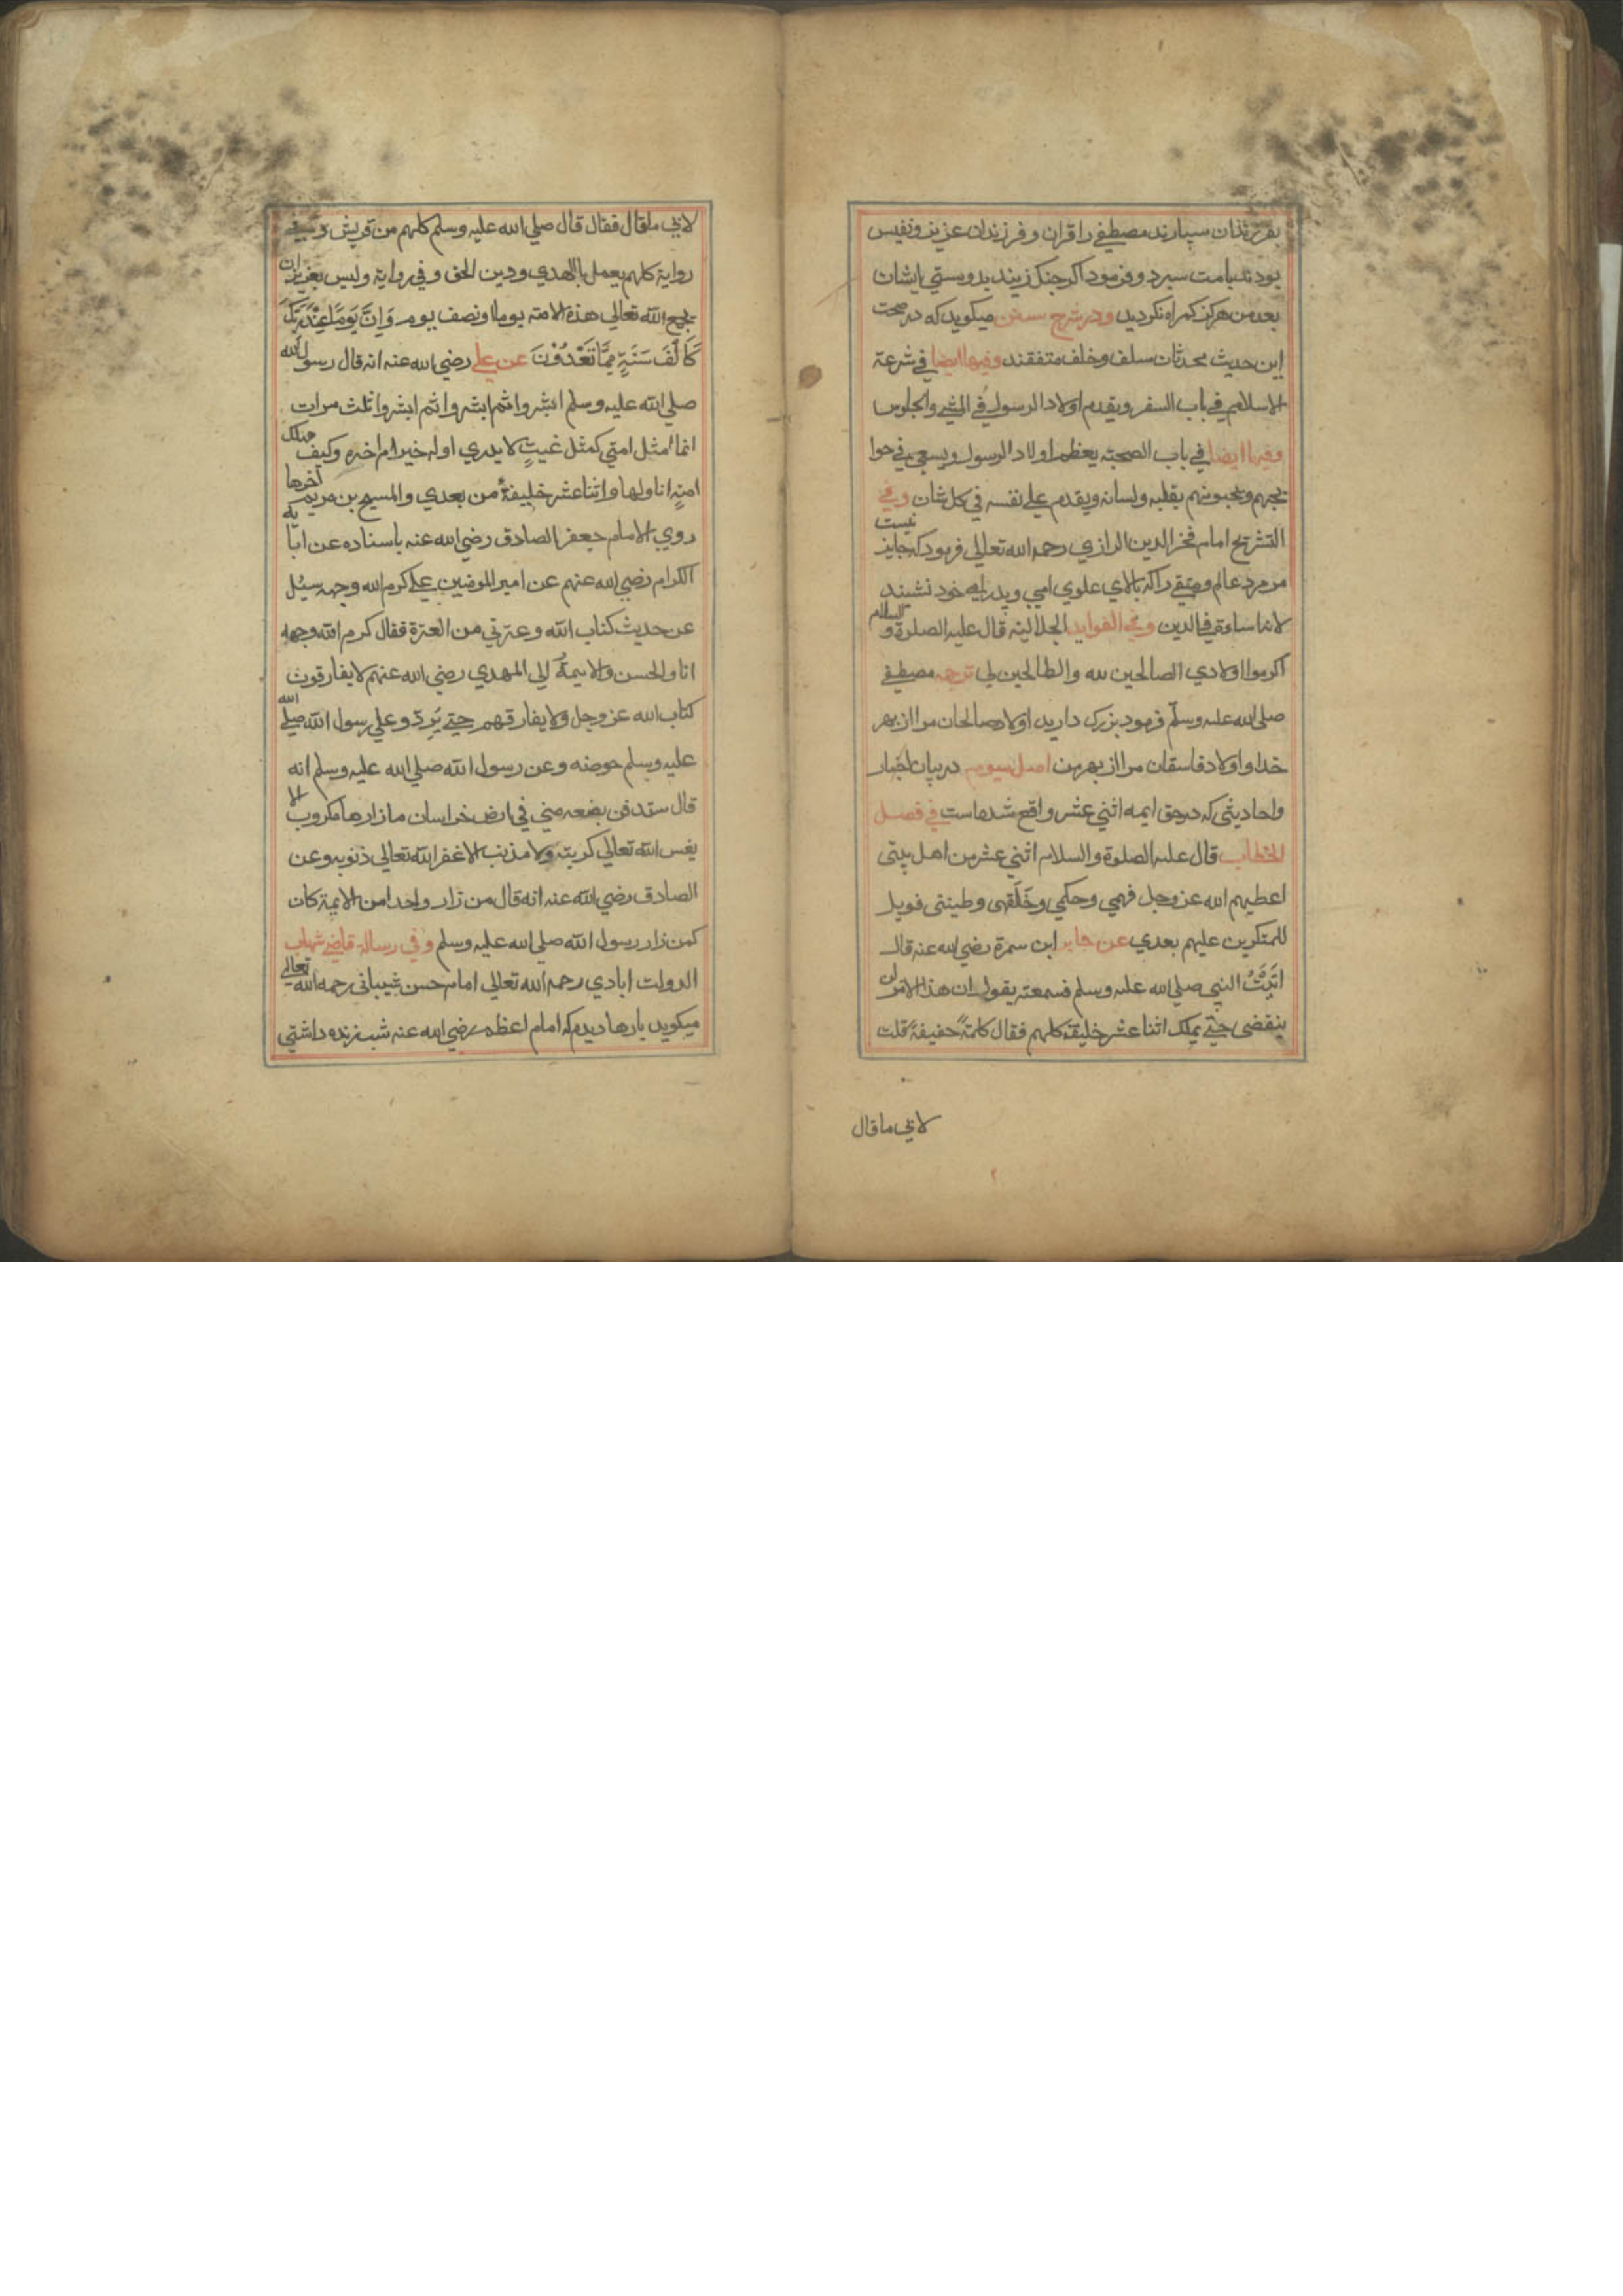 بفرزندان سپارند مصطفی را قران و فرزندان عزیز و نفیس
بودند بامت سپرد و فرمود اکر چنک زیند بدوستی ایشان
بعد من هرکز کمراه نکردید و در شرح سنن میکوید که در صحت
این حدیث محدثان سلف و خلف متفقند وفیها ایضا فی شرعة
الاسلام فی باب السفر ویقدم اولاد الرسول فی المشی والجلوس
وفیها ایضا فی باب الصحبة یعظم اولاد الرسول ویسعی فی حوا
یجهم ویحبونهم بقلبه ولسانه ویقدم علی نفسه فی کل شان وفی
التشریح امام فخر الدین الرازی رحمه الله تعالی فرمود که جایز نیست
مر مرد عالم و متقی را که بالای علوی امی و خود نشیند
لانه اساءة فی الدین وفی الفواید الجلالیه قال علیه الصلوة والسلام
اکرموا اولادی الصالحین لله والطالحین لی ترجمه مصطفی
صلی الله علیه وسلم فرمود بزرک دارید اولاد صالحان مرا از بهر
خدا و اولاد فاسقان مرا از بهر من اصل سیوم در بیان اخبار
واحادیثی که در حق ایمه اثنی عشر واقع شده است فی فصل
الخطاب قال علیه الصلوة والسلام اثنی عشر من اهل بیتی
اعطیهم الله عز وجل فهمی وحکمی وخلقی وطینتی فویل
للمتکرین علیهم بعدی عن جابر ابن سمرة رضی الله عنه قال
اتیت النبی صلی الله علیه وسلم فسمعته یقول ان هذا الامر لن
ینقضی حتی یملک اثنا عشر خلیفة کلهم فقال کلمة خفیفة قلت
لابی ما قال
لابی ما قال فقال قال صلی الله علیه وسلم کلهم من قریش وفی
روایة کلهم یعمل بالهدی ودین الحق وفی روایة ولیس بعزیز ان
یجمع الله تعالی هذه الامة یوما ونصف یوم وَاِنَّ یَوْمًا عِنْدَ رَبِّکَ
کَاَلْفِ سَنَةٍ مِمَّا تَعُدُّوْنَ عن علی رضی الله عنه انه قال رسول الله
صلی الله علیه وسلم ابشروا ثم ابشروا ثم ابشروا ثلث مرات
انما مثل امتی کمثل غیث لا یدری اوله خیر ام اخره وکیف تهلک
امة انا اولها واثنا عشر خلیفة من بعدی والمسیح بن مریم آخرها
روی الامام جعفر الصادق رضی الله عنه باسناده عن ابایه
الکرام رضی الله عنهم عن امیر المومنین علی کرم الله وجهه سئل
عن حدیث کتاب الله وعترتی من العترة فقال کرم الله وجهه
انا والحسن والایمة الی المهدی رضی الله عنهم لا یفارقون
کتاب الله عز وجل ولا یفارقهم حتی یردو علی رسول الله صلی الله
علیه وسلم حوضه وعن رسول الله صلی الله علیه وسلم انه
قال ستدفن بضعه منی فی ارض خراسان ما زارها مکروب الا
یفس الله تعالی کربته ولا مذنب الا غفر الله تعالی ذنوبه وعن
الصادق رضی الله عنه انه قال من زار واحدا من الایمة کان
کمن زار رسول الله صلی الله علیه وسلم وفی رسالة قاضی شهاب
الدولت ابادی رحمه الله تعالی امام حسن شیبانی رحمه الله تعالی
میکوید بارها دیدم که امام اعظم رضی الله عنه شب زنده داشتی